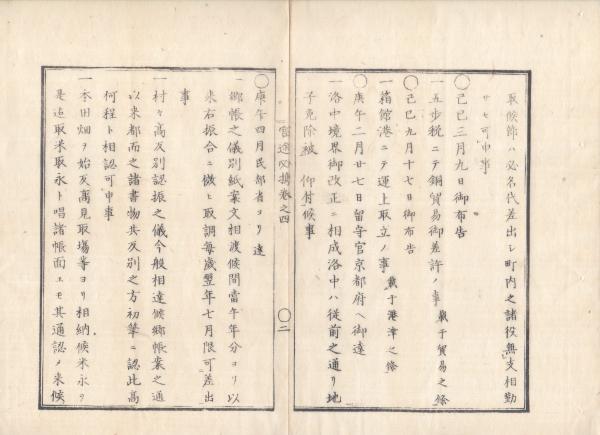 取候節ハ必名代差出シ町内之諸役無支相勤
サセ可申事
〇己巳三月九日御布告
一五歩税ニテ銅貿易御差許ノ事 載于貿易之條
〇己巳九月十七日御布告
一箱館港ニテ運上取立ノ事 載于港津之條
〇庚午二月廿七日留守官京都府ヘ御達
一洛中境界御改正ニ相成洛中ハ従前之通リ地
子免除被 仰付候事
官途必携巻之四
〇二
〇庚午四月民部省ヨリ達
一郷帳之儀別紙案文相渡候間當午年分ヨリ以
来右振合ニ傚ヒ取調毎歳翌年七月限可差出
事
一村々高反別認振之儀今般相達候郷帳案之通
以来都而之諸書物共反別之方初筆ニ認此高
何程ト相認可申事
一本田畑ヲ始反高見取場等ヨリ相納候米永ヲ
是迄取米取永ト唱諸帳面エモ其通認メ来候